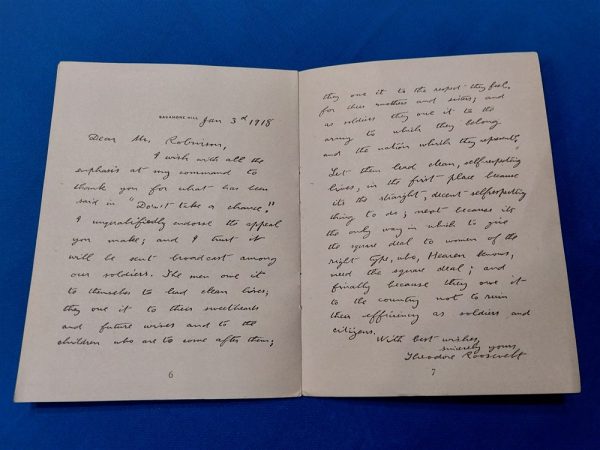 SAGAMORE HILL. Jan 3rd 1918
Dear Mr. Robinson,
I wish with all the
emphasis at my command to
thank you for what has been
said in "Don't take a chance."
I unqualifiedly endorse the appeal
you make; and I trust it
will be sent broadcast among
our soldiers. The men owe it
to themselves to lead clean lives;
they owe it to their sweethearts
and future wives and to the
children who are to come after them;
6
they owe it to the respect they feel
for their mothers and sisters; and
as soldiers they owe it to the
army to which they belong
and the nation which they represent.
Let them lead clean, selfrespecting
lives, in the first place because
its the straight, decent selfrespecting
thing to do; next because its
the only way in which to give
the square deal to women of the
right type, who, Heaven knows,
need the square deal; and
finally because they owe it
to the country not to ruin
their efficiency as soldiers and
citizens.
With best wishes,
sincerely yours
Theodore Roosevelt
7